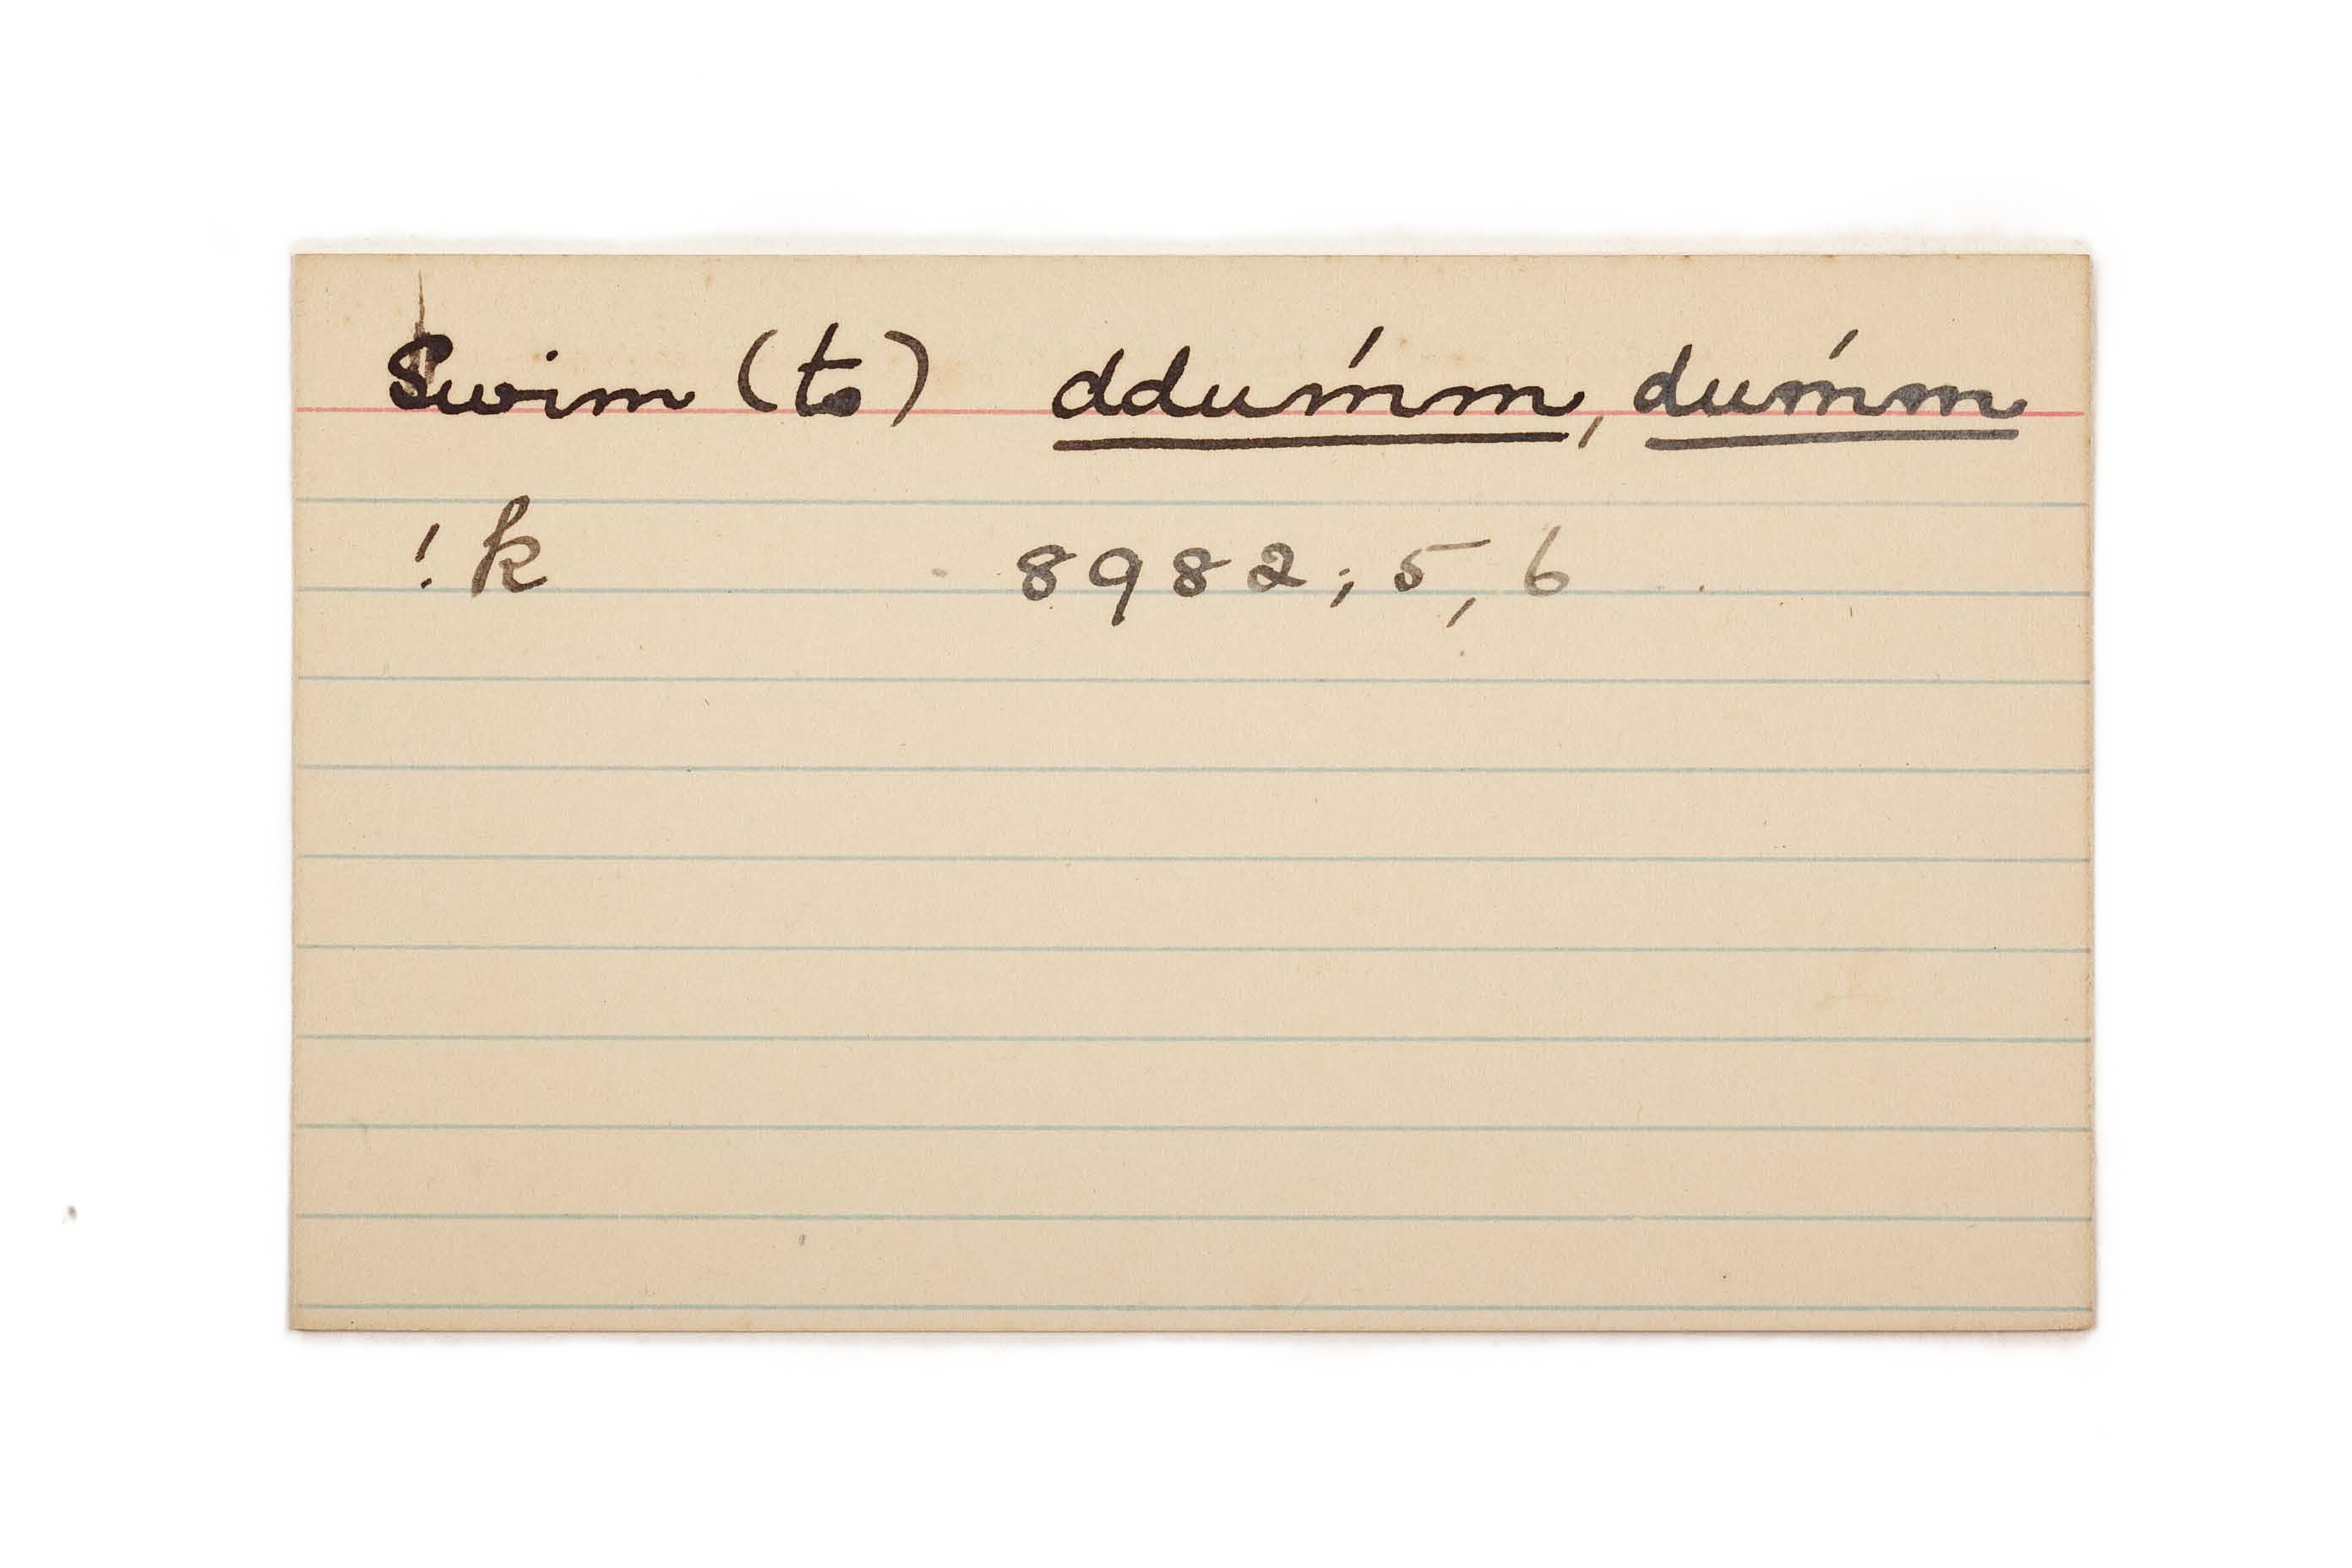 Swim (to) dduḿm, duḿm
!k 8982; 5, 6